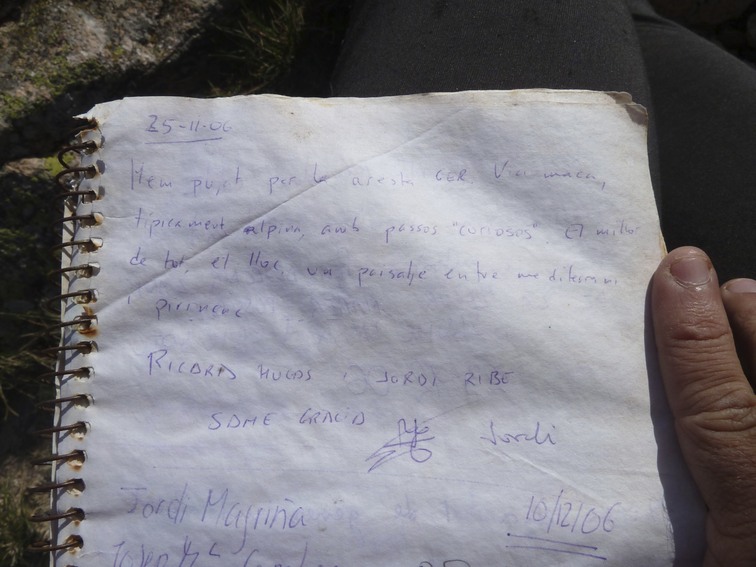 25-11-06
Hem pujat per la aresta GER. Via maca,
típicament alpina, amb passos "curiosos". El millor
de tot, el lloc, un paisatge entre mediterrani
i pirinenc
RICARD HUGAS i JORDI RIBE
SDME GRACIA
Jordi
Jordi Magriña 10/12/06